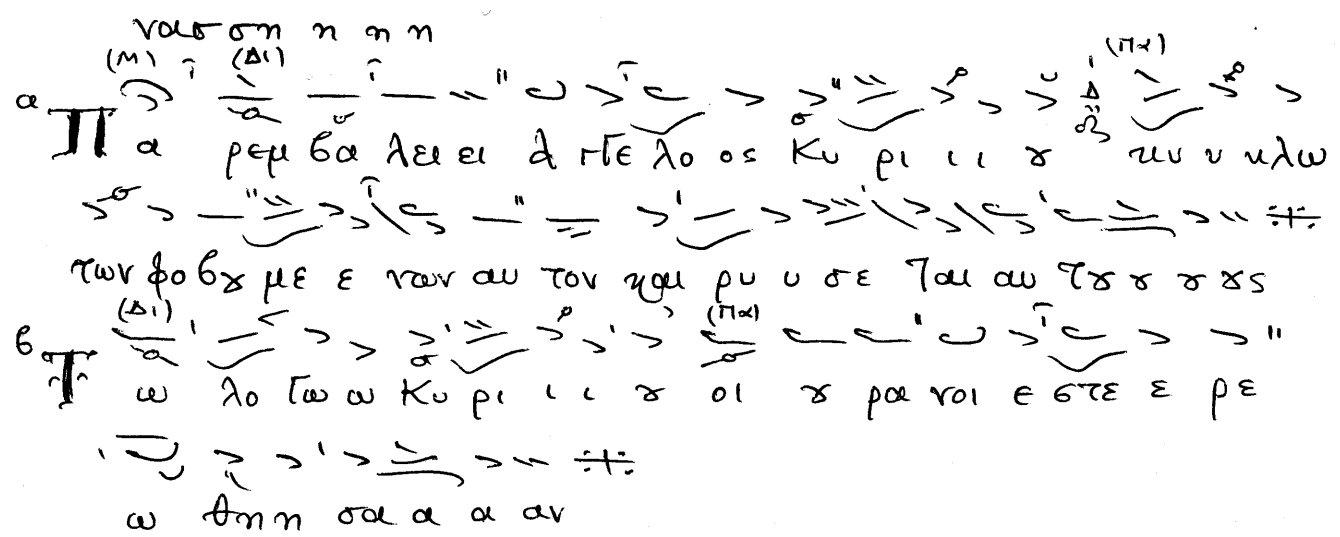 νασ ση η η η
(Μ) (Δι) (Πα)
α Πα ρεμ βα λει ει Αγγε λο ος Κυ ρι ι ι ȣ κυ υ κλω
των φο βȣ με ε νων αυ τον και ρυ υ σε ται αυ τȣ ȣ ȣ ȣς
(Δι) (Πα)
β Τω λο γω ω Κυ ρι ι ι ȣ οι ȣ ρα νοι ε στε ε ρε
ω θη η σα α α αν